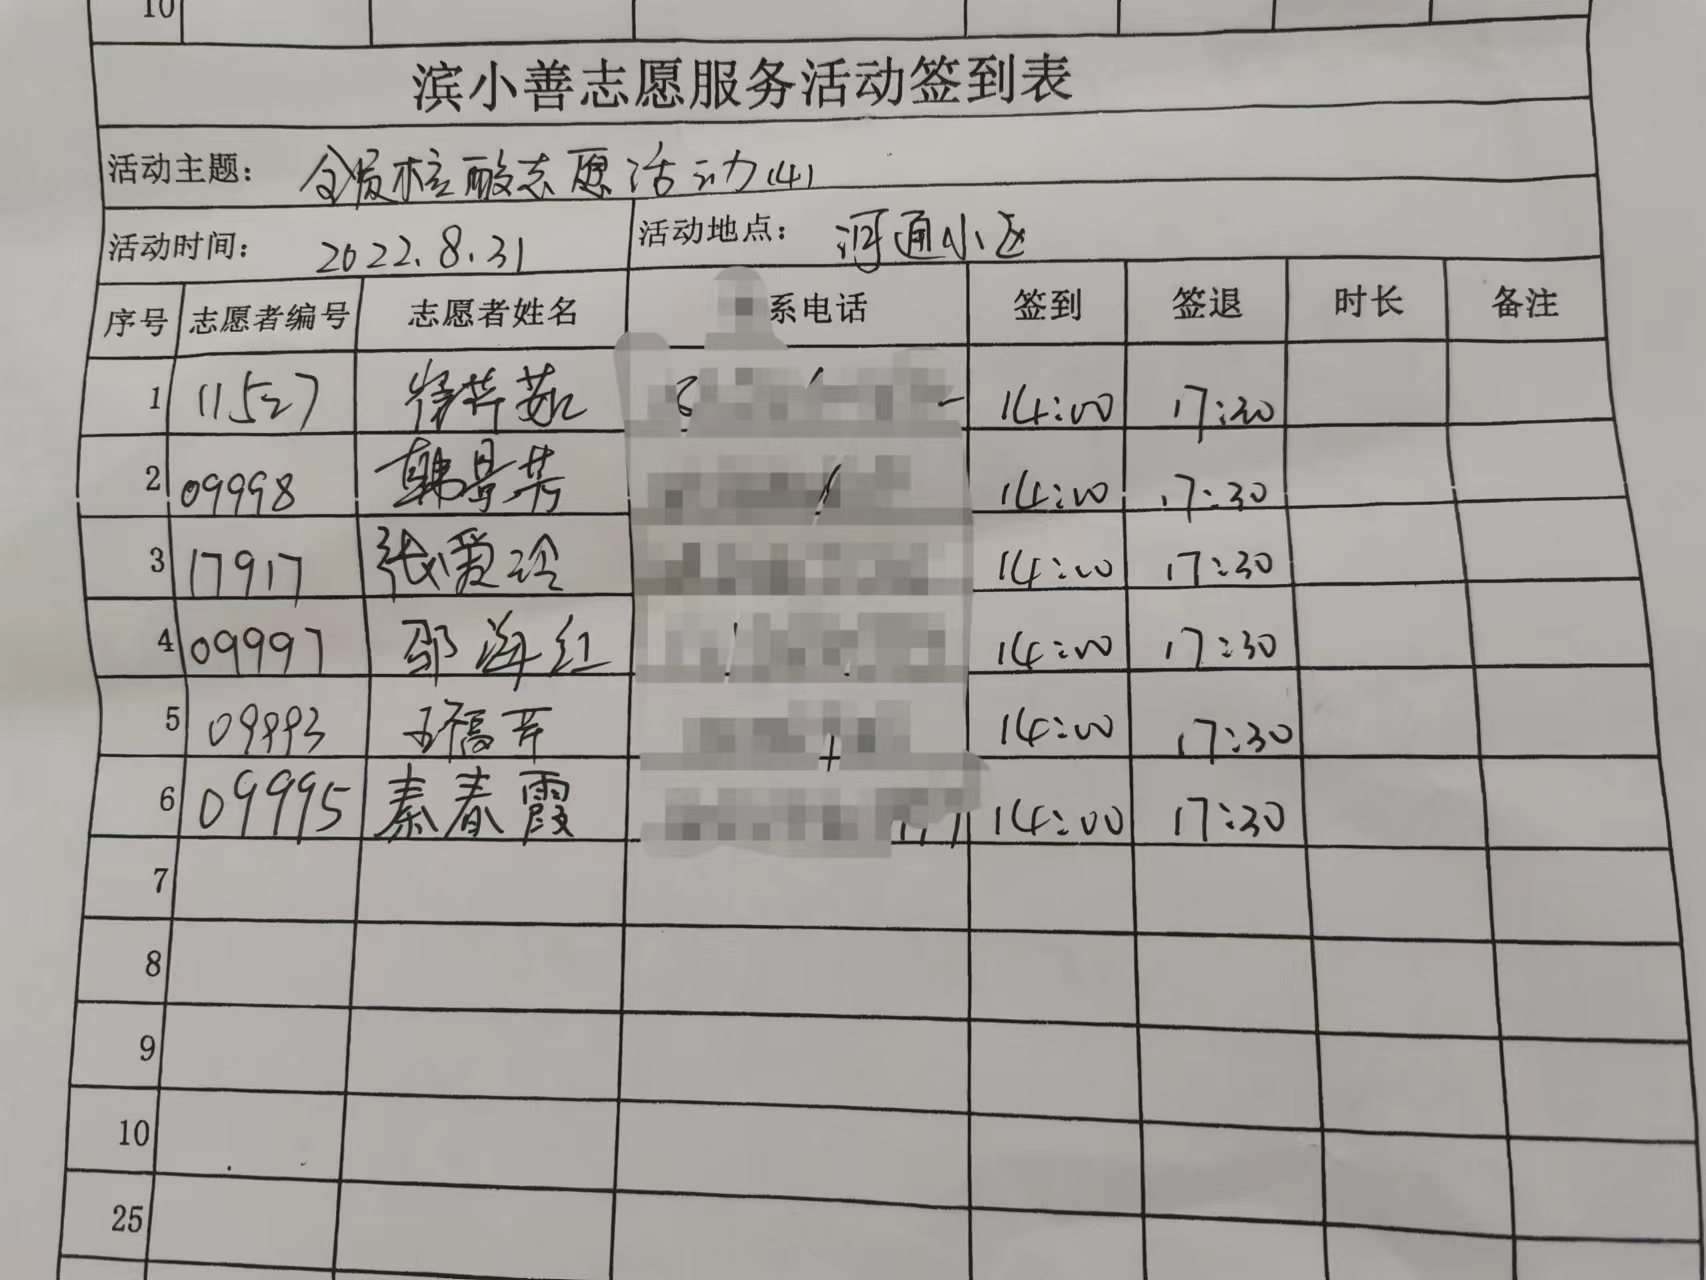 10
滨小善志愿服务活动签到表
活动主题： 全员核酸志愿活动(4)
活动时间： 2022.8.31 活动地点： 河通小区
序号 志愿者编号 志愿者姓名 系电话 签到 签退 时长 备注
1 11527 14:00 17:30
2 09998 韩景芳 14:00 17:30
3 17917 张爱玲 14:00 17:30
4 09997 邵海红 14:00 17:30
5 09993 14:00 17:30
6 09995 秦春霞 14:00 17:30
7
8
9
10
25